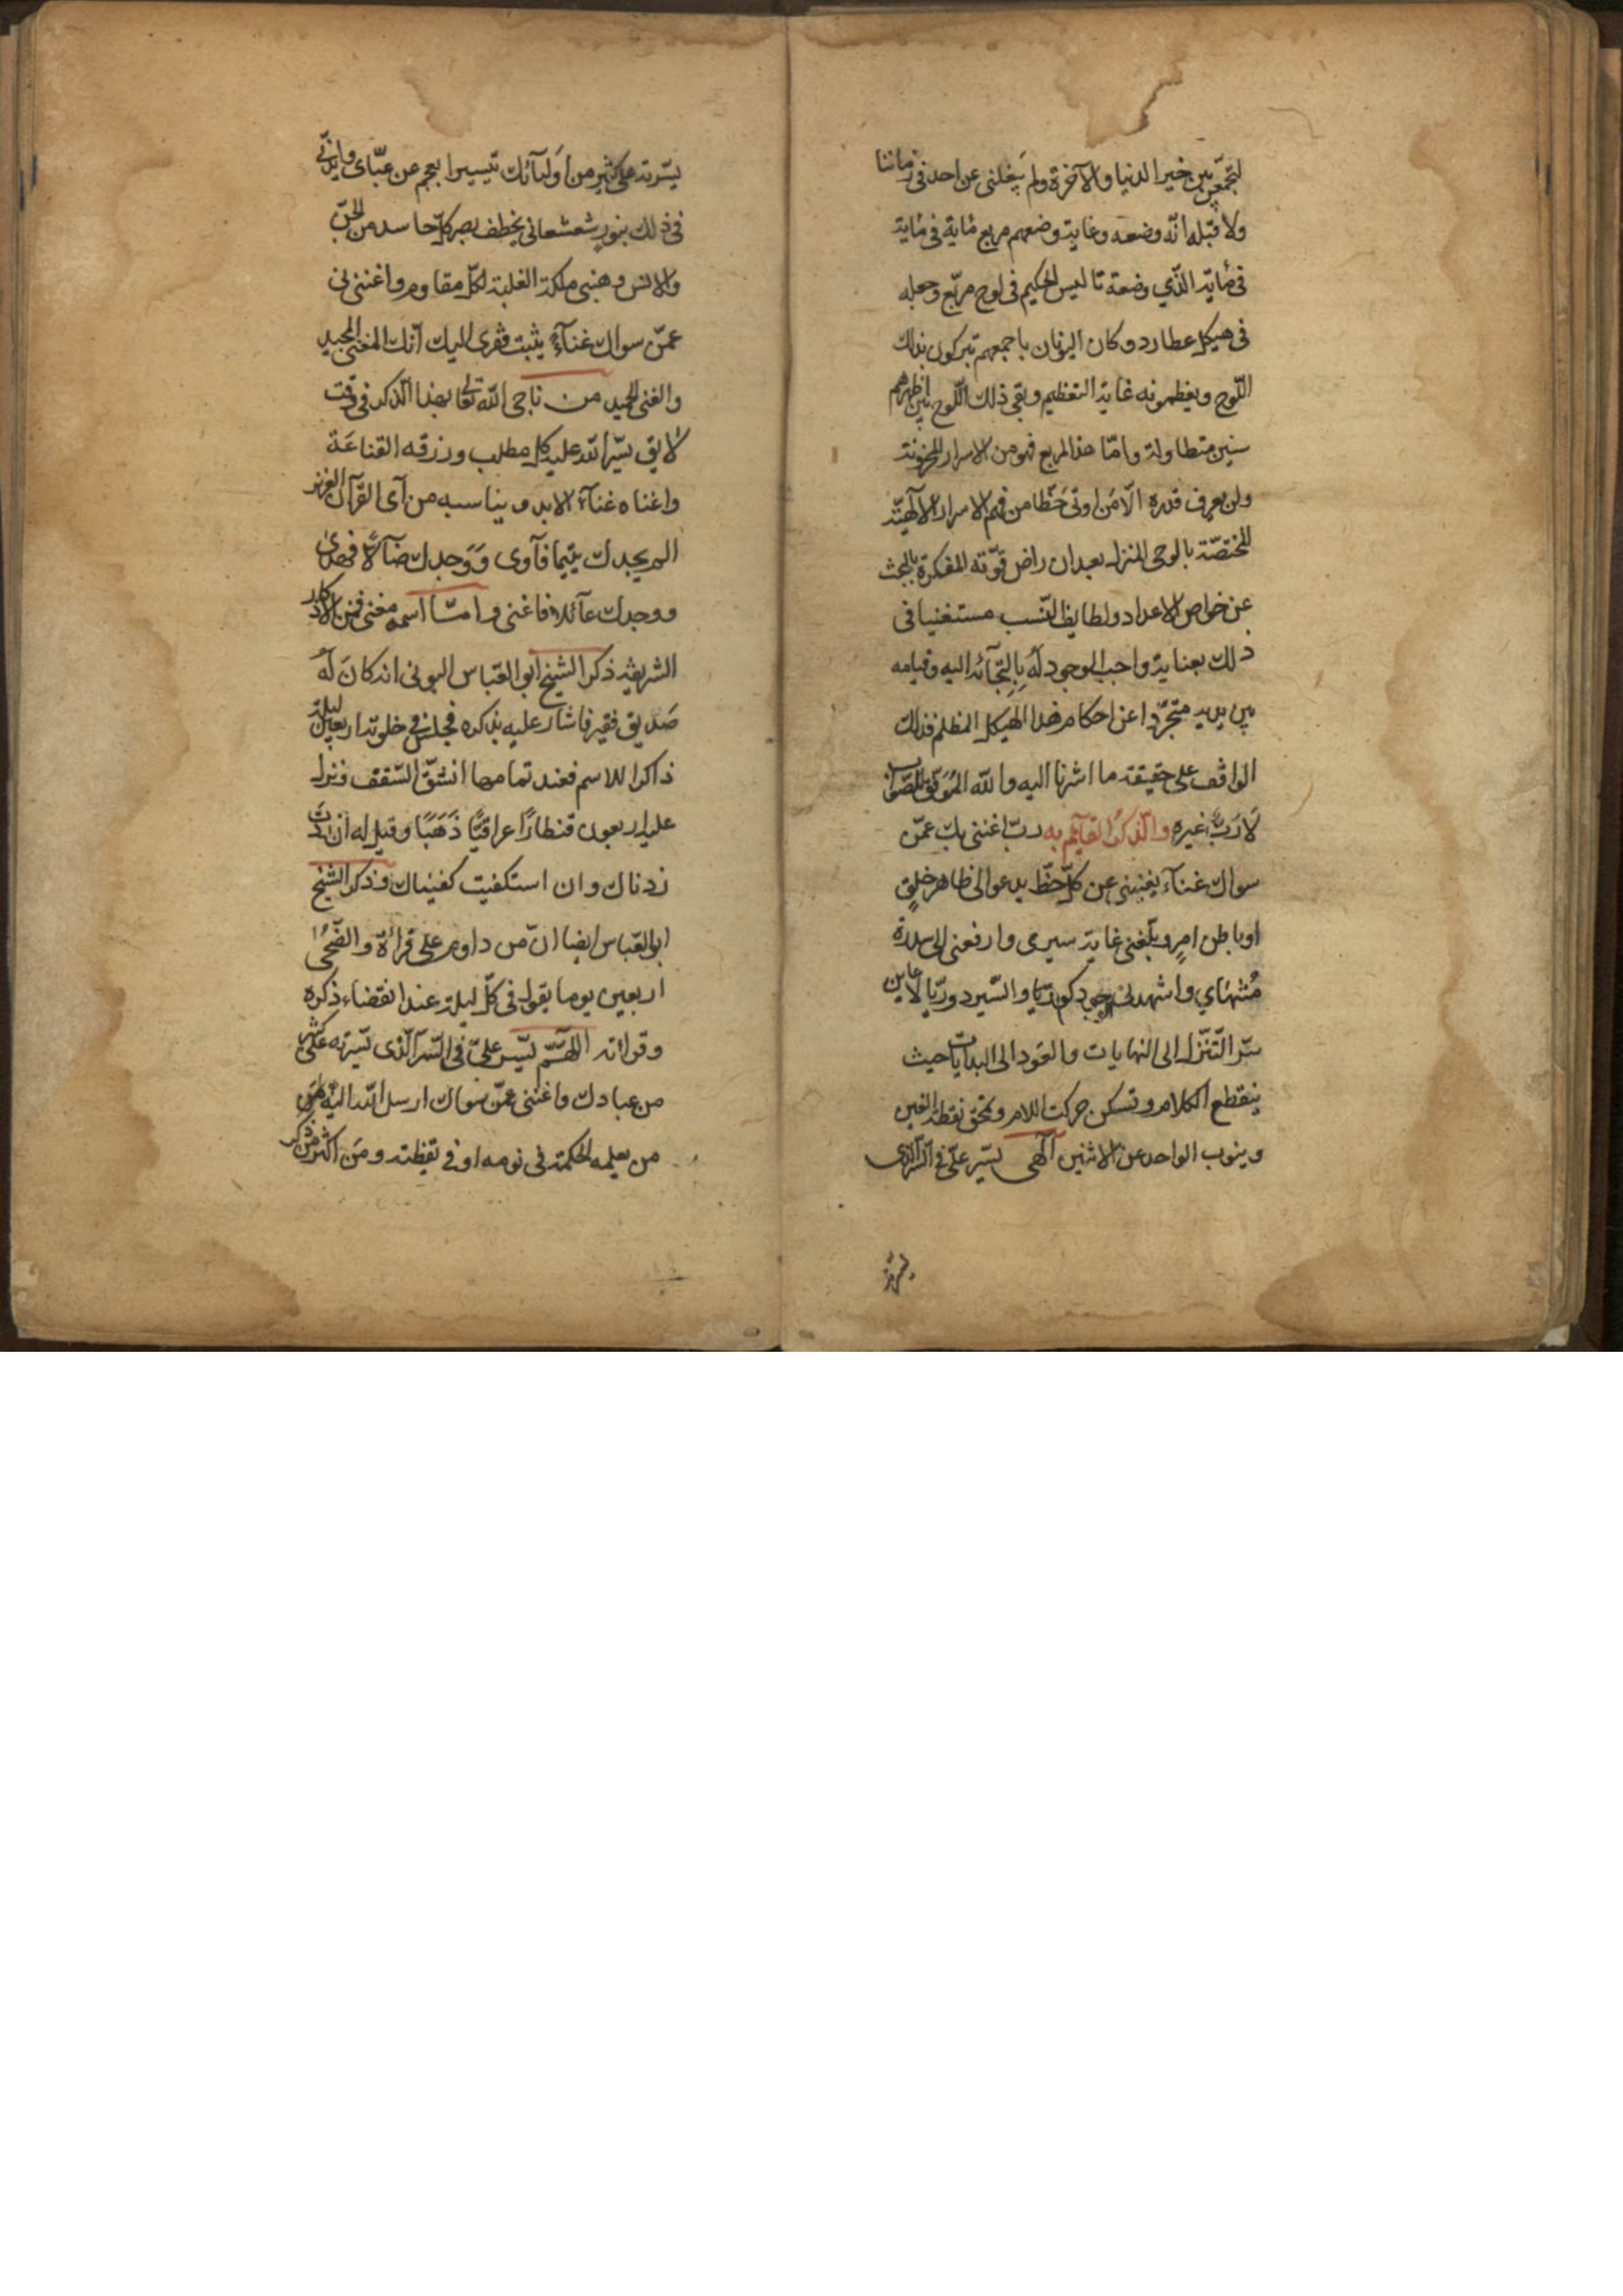 لتجمع بين خير الدنيا والآخرة ولم يبلغني عن احد في زماننا
ولا قبله انه وضعه وغاية وضعهم مربع مائة في مائة
في مائة الذي وضعه تاليس الحكيم في لوح مربع وجعله
في هيكل عطارد وكان اليونان باجمعهم تبركون بذلك
اللّوح ويعظمونه غاية التعظيم وبقي ذلك اللّوح بين اظهرهم
سنين متطاولة وامّا هذا المربع فهو من الاسرار المخزونة
ولن يعرف قدره الّا من اوتي حَظّا من فهم الاسرار الآلهيّة
المختصّة بالوحي المنزل بعد ان راض قوّته المفكرة بالبحث
عن خواص الاعداد ولطايف النّسب مستغنيا في
ذلك بعناية واجب الوجود لَهُ بِالتِجَآئه اليه وقيامه
بين يديه متجرّدا عن احكام هذا الهيكل المظلم فذلك
الواقف على حقيقة ما اشرنا اليه والله المُوَفّق للصّواب
لَا رَبَّ غيره والذّكر القآئم به ربّ اغنني بك عمّن
سواك غنآء يغنيني عن كلّ حظّ يدعوا لى ظاهر خلقٍ
او باطن امرٍ وبلّغني غاية سيرى وارفعنى الى سدرة
مُنتهَاي واشهدنى الوجود كوريّا والسّير دوريّا لاعاين
سّر التّنزّل الى النهايات والعَود الى البدايات حيث
ينقطع الكلام وتسكن حركت اللام وتمحق نقطة الغين
وينوب الواحد عن الاثنين آلهى يسّر علىّ في السّر الّذى
يسّرته
يسّرته على كثير من اَوليَآئك تيسيرا يعجم عن عبّاى وايّدنى
في ذلك بنورٍ شعشعاني يخطف بصر كلّ حاسد من الجنّ
والانس وهبنى ملكة الغلبة لكلّ مقاوم واغننى بك
عمّن سواك غنآءً يثبت فقرى اليك انّك المغنى المجيد
والغنى الحميد من ناجى الله تعالى بهذا الذّكر في وقت
لائق يسّر الله عليه كل مطلب ورزقه القناعَة
واغناه غنآء الابد ويناسبه من آى القرآن العزيز
الم يجدك يتيما فآوى وَوَجدك ضآلاًّ فهدى
ووجدك عآئلا فاغنى وامّا اسمه مغنى فمن الاذكار
الشريفة ذكر الشيخ ابو العبّاس البونى انه كانَ لَهُ
صَديق فقير فاشار عليه بذكره فجلس في خلوته اربعين ليلة
ذاكرا للاسم فعند تمامها انشقّ السّقف ونزل
عليه اربعون قنطارًا عراقيًّا ذَهَبًا وقيل له ان زدت
زدناك وان استكفيت كفيناك وذكر الشيخ
ابو العبّاس ايضا انّ من داوم على قرائة والضّحى
اربعين يوما يقول في كلّ ليلة عند انقضاء ذكره
وقرائته اللهمّ يسّر علىّ فى السّر الّذى يسّرته على كثير
من عبادك واغننى عمّن سواك ارسل الله اليه
من يعلمه الحكمة في نومه او في يقظته ومَن اكثر من ذكر